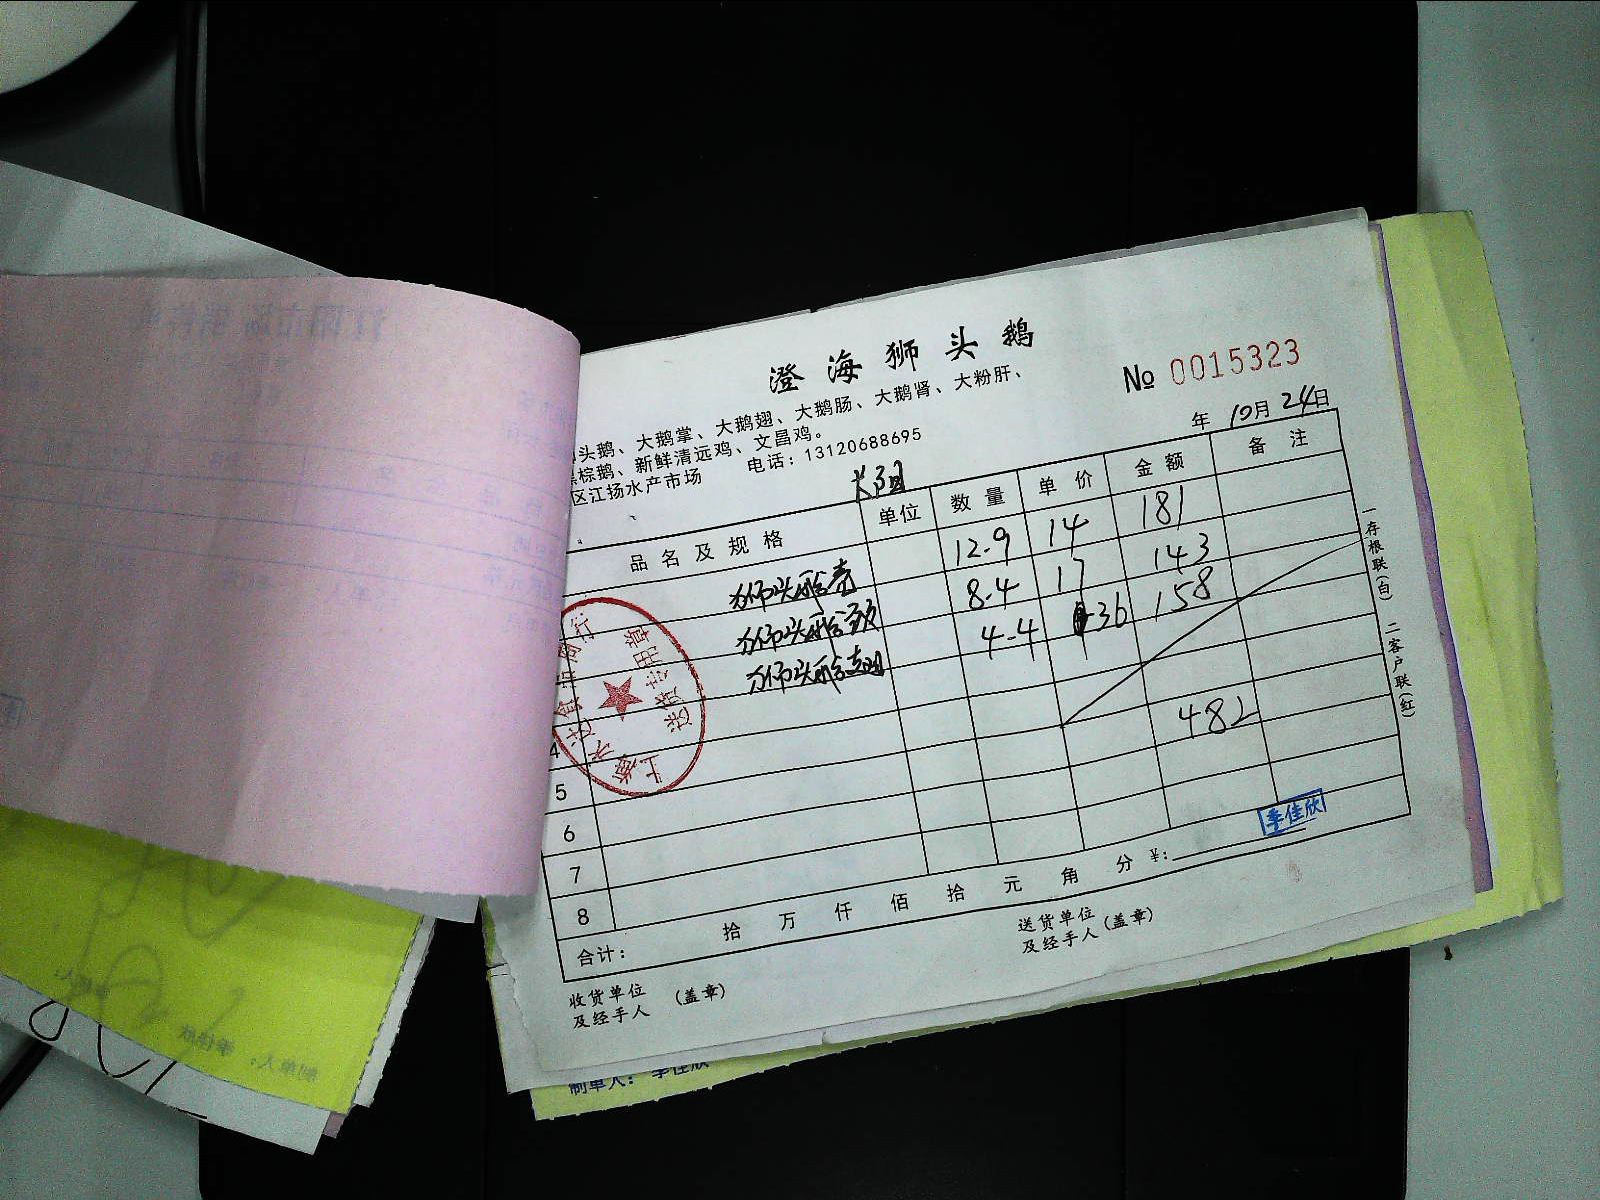 澄海狮头鹅
№ 0015323
头鹅、大鹅掌、大鹅翅、大鹅肠、大鹅肾、大粉肝、
棕鹅、新鲜清远鸡、文昌鸡。
区江扬水产市场 电话：13120688695
年 10月 24日
品名及规格 单位 数量 单价 金额 备注
狮头鹅 12.9 14 181
狮头鹅头 8.4 17 143
狮头鹅翅 4.4 36 158
482
4
5
6
7
8
合计： 拾 万 仟 佰 拾 元 角 分 ¥：
季佳欣
收货单位 （盖章）
及经手人
送货单位
及经手人（盖章）
一存根联（白） 二客户联（红）
送货专用章
制单人： 季佳欣
制单人： 季佳欣